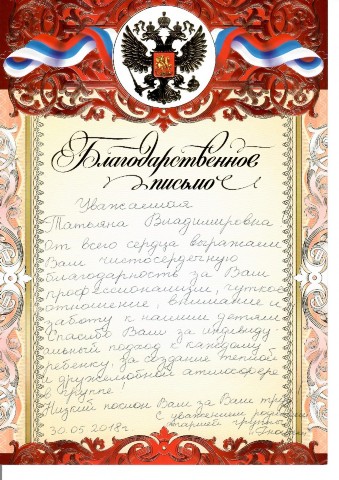 Благодарственное
письмо
Уважаемая
Татьяна Владимировна
От всего сердца выражаем
Вам чистосердечную
благодарность за Ваш
профессионализм, чуткое
отношение, внимание и
заботу к нашим детям.
Спасибо Вам за индивиду-
альный подход к каждому
ребенку, за создание теплой
и дружелюбной атмосфере
в группе!
Низкий поклон Вам за Ваш труд!
С уважением родители
старшей группы
30.05.2018г.